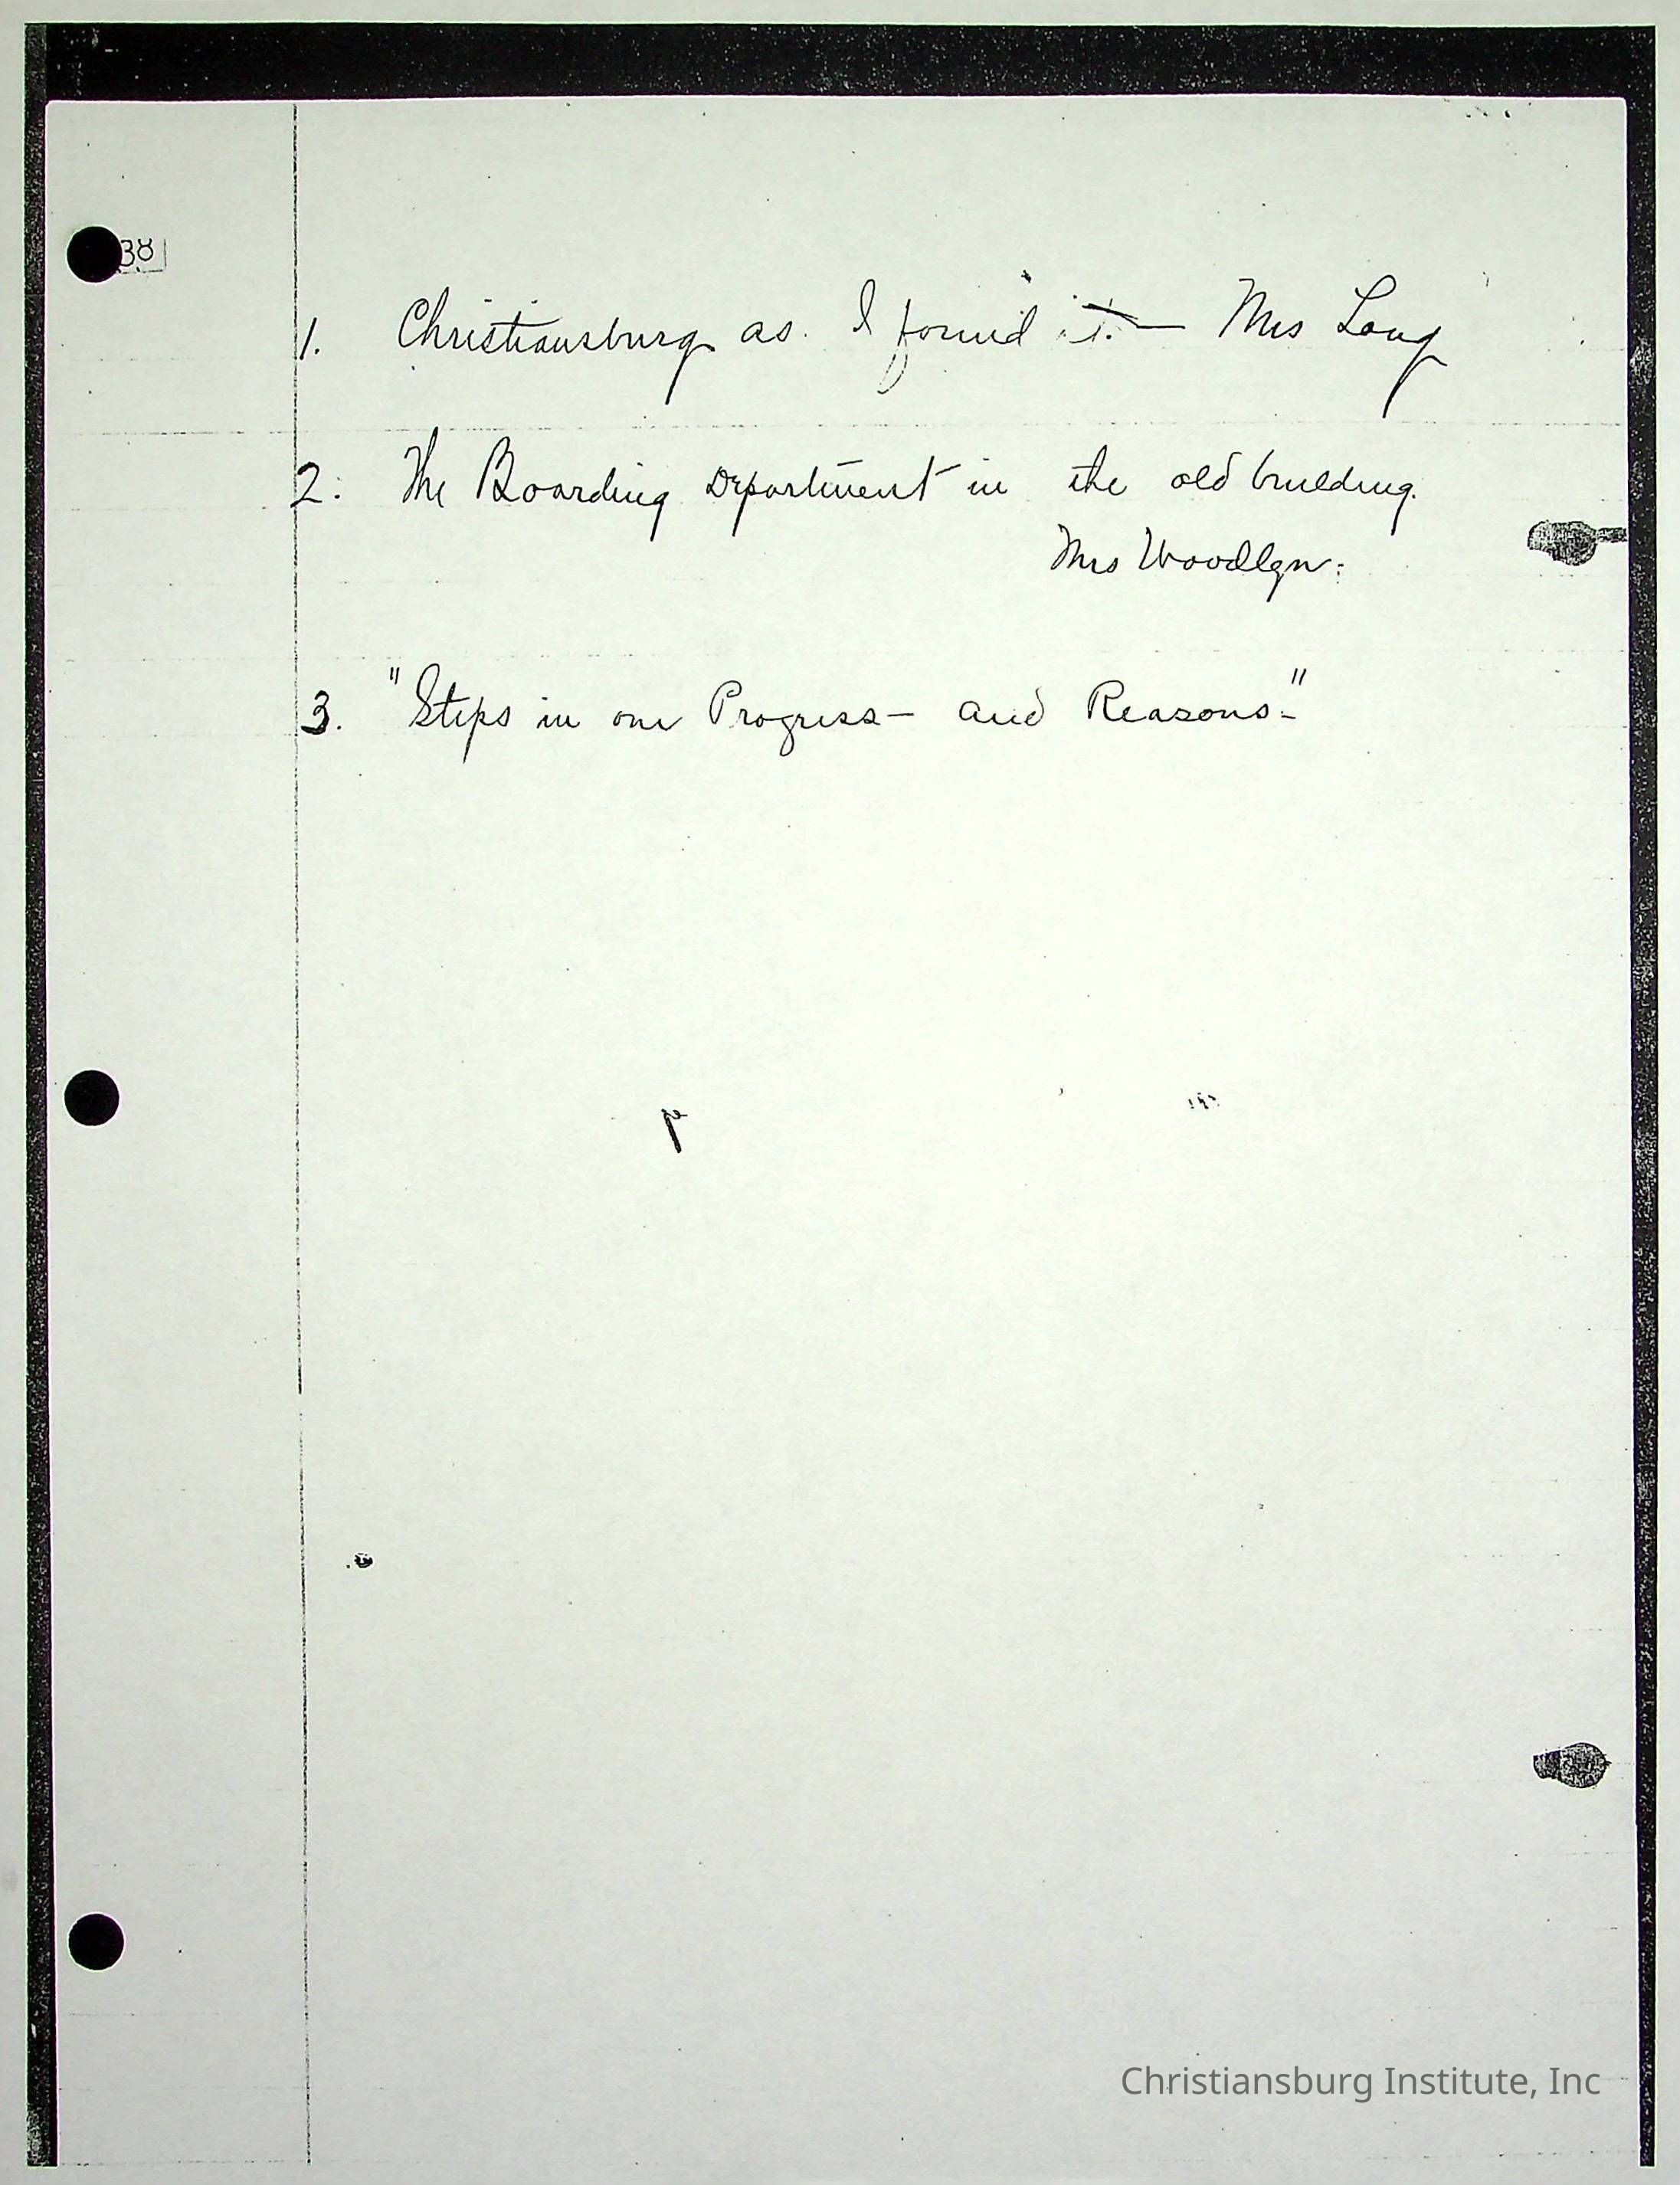 38
1. Christiansburg as I found it — Mrs Long
2. The Boarding Department in the old building.
Mrs Woodlyn.
3. "Steps in our Progress — and Reasons."
Christiansburg Institute, Inc